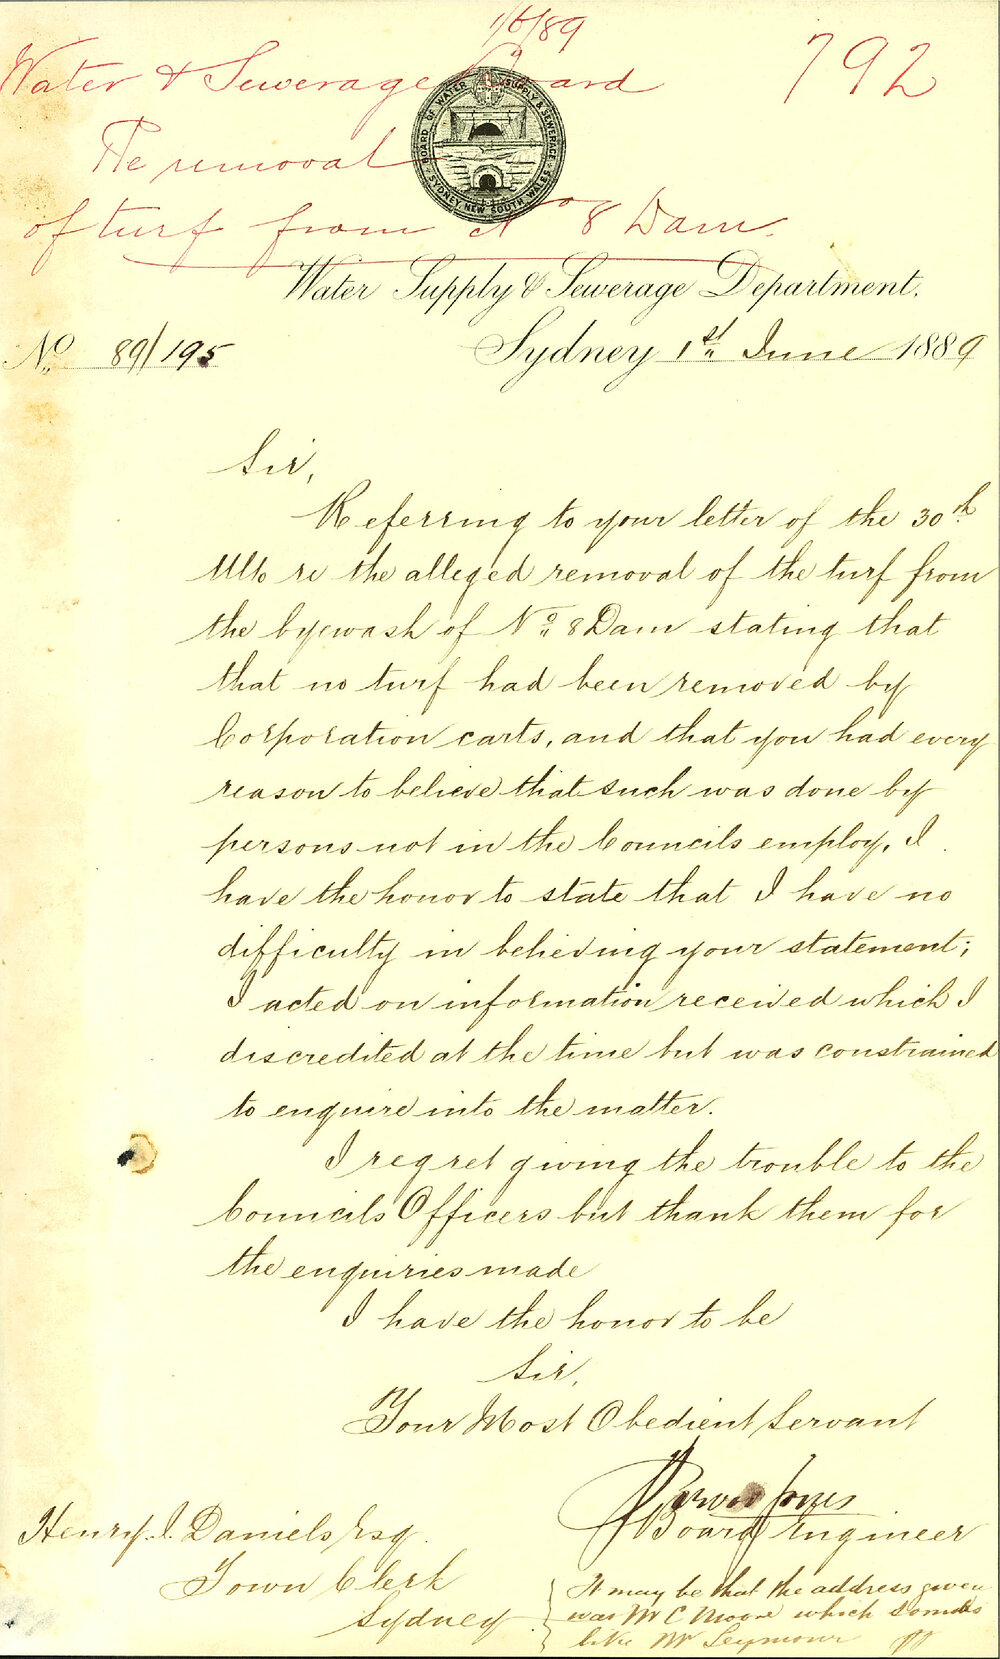 1/6/89
Water & Sewerage Board 792
Re removal
of turf from No 8 Dam.
BOARD OF WATER SUPPLY & SEWERAGE
SYDNEY, NEW SOUTH WALES
Water Supply & Sewerage Department.
No. 89/195 Sydney 1st June 1889
Sir,
Referring to your letter of the 30th
Ulto re the alleged removal of the turf from
the byewash of No. 8 Dam stating that
that no turf had been removed by
Corporation carts, and that you had every
reason to believe that such was done by
persons not in the Councils employ, I
have the honor to state that I have no
difficulty in believing your statement;
I acted on information received which I
discredited at the time but was constrained
to enquire into the matter.
I regret giving the trouble to the
Councils Officers but thank them for
the enquiries made
I have the honor to be
Sir,
Your Most Obedient Servant
Jones
Board Engineer
Henry J. Daniels Esq.
Town Clerk
Sydney
It may be that the address given
was Mr C Moore which sounds
like Mr Seymour